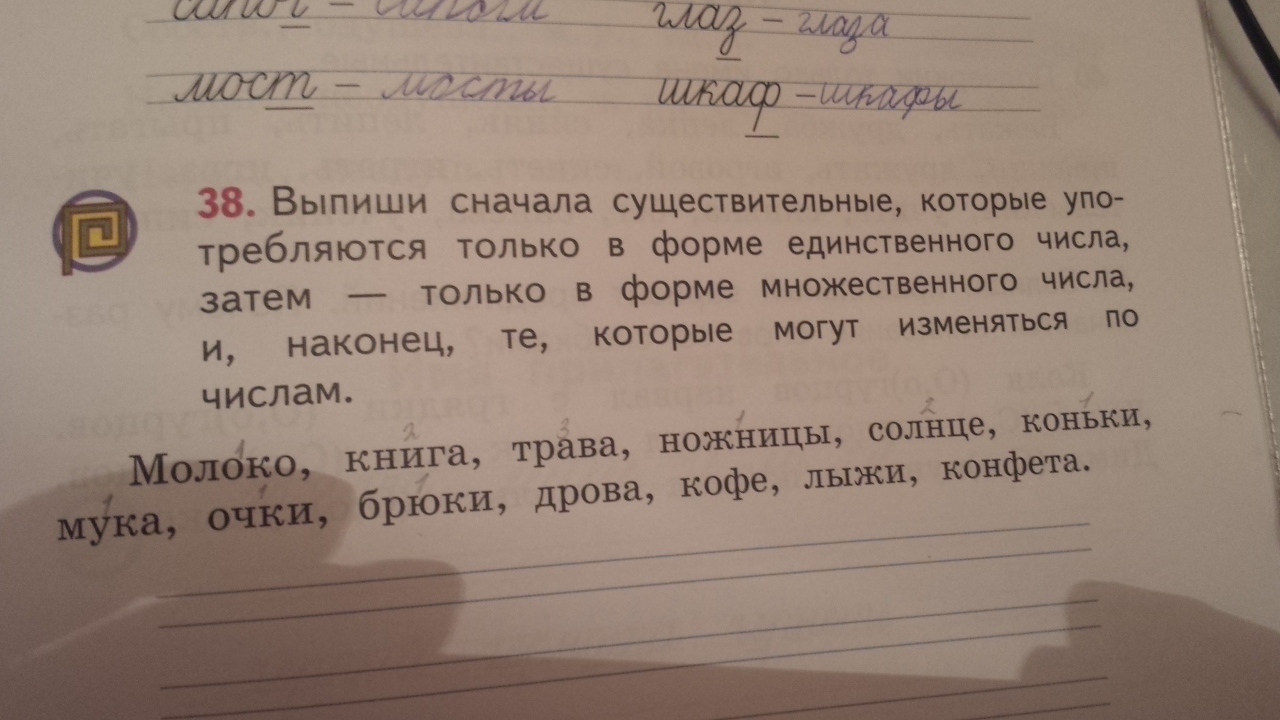 сапог – сапоги глаз – глаза
мост – мосты шкаф – шкафы
38. Выпиши сначала существительные, которые упо-
требляются только в форме единственного числа,
затем — только в форме множественного числа,
и, наконец, те, которые могут изменяться по
числам.
1 2 3 1 2 1
Молоко, книга, трава, ножницы, солнце, коньки,
1 1 1
мука, очки, брюки, дрова, кофе, лыжи, конфета.